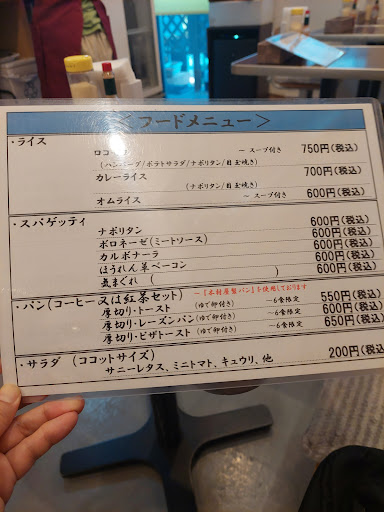 ＜フードメニュー＞
・ライス
ロコ ～ スープ付き 750円(税込)
(ハンバーグ/ポテトサラダ/ナポリタン/目玉焼き)
カレーライス 700円(税込)
(ナポリタン/目玉焼き)
オムライス ～ スープ付き 600円(税込)
・スパゲッティ
ナポリタン 600円(税込)
ボロネーゼ(ミートソース) 600円(税込)
カルボナーラ 600円(税込)
ほうれん草ベーコン 600円(税込)
気まぐれ ( ) 600円(税込)
・パン(コーヒー又は紅茶セット) ～『木村屋製パン』を使用しております
厚切り・トースト (ゆで卵付き) ～6食限定 550円(税込)
厚切り・レーズンパン(ゆで卵付き) ～6食限定 600円(税込)
厚切り・ピザトースト (ゆで卵付き) ～6食限定 650円(税込)
・サラダ (ココットサイズ) 200円(税込)
サニーレタス、ミニトマト、キュウリ、他